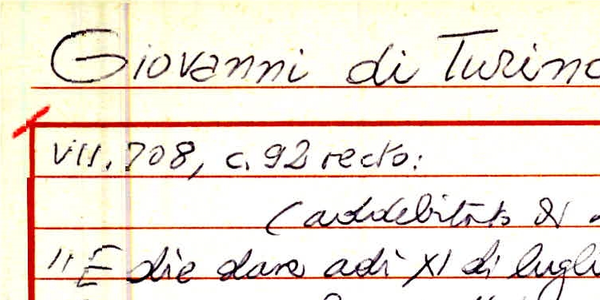 Giovanni di Turino
VII. 708, c. 92 recto:
(addebitato di
"E die dare adì XI di lugli